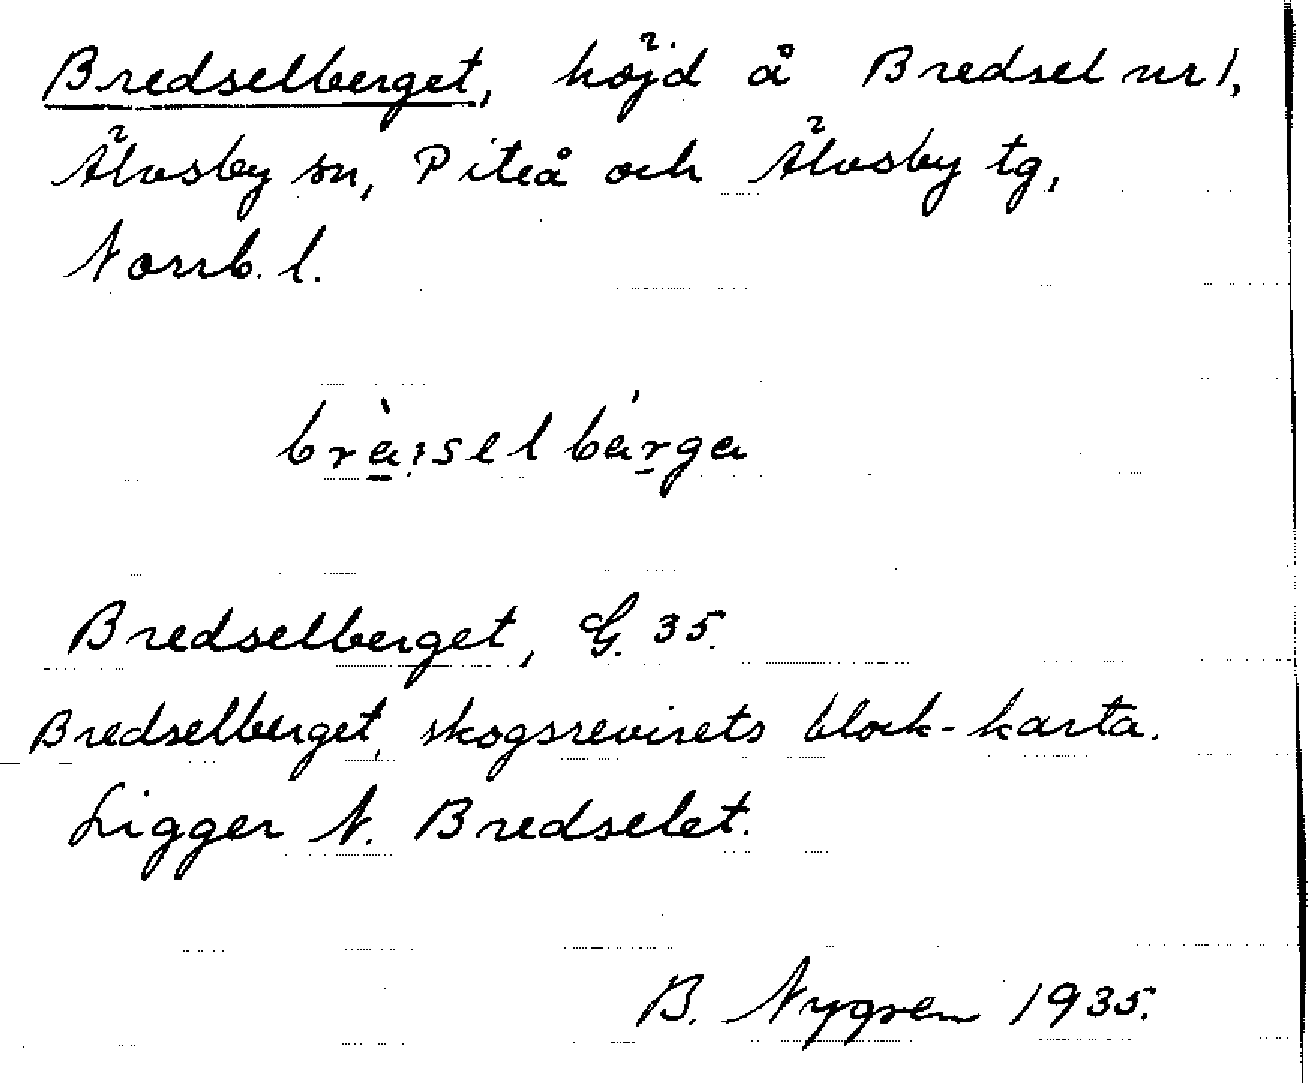 Bredselberget, höjd å Bredsel nr 1,
Älvsby sn, Piteå och Älvsby tg,
Norrb. l.
brà̠:sel bárga
Bredselberget, G. 35.
Bredselberget, skogsrevirets block-karta.
Ligger N. Bredselet.
B. Nygren 1935.